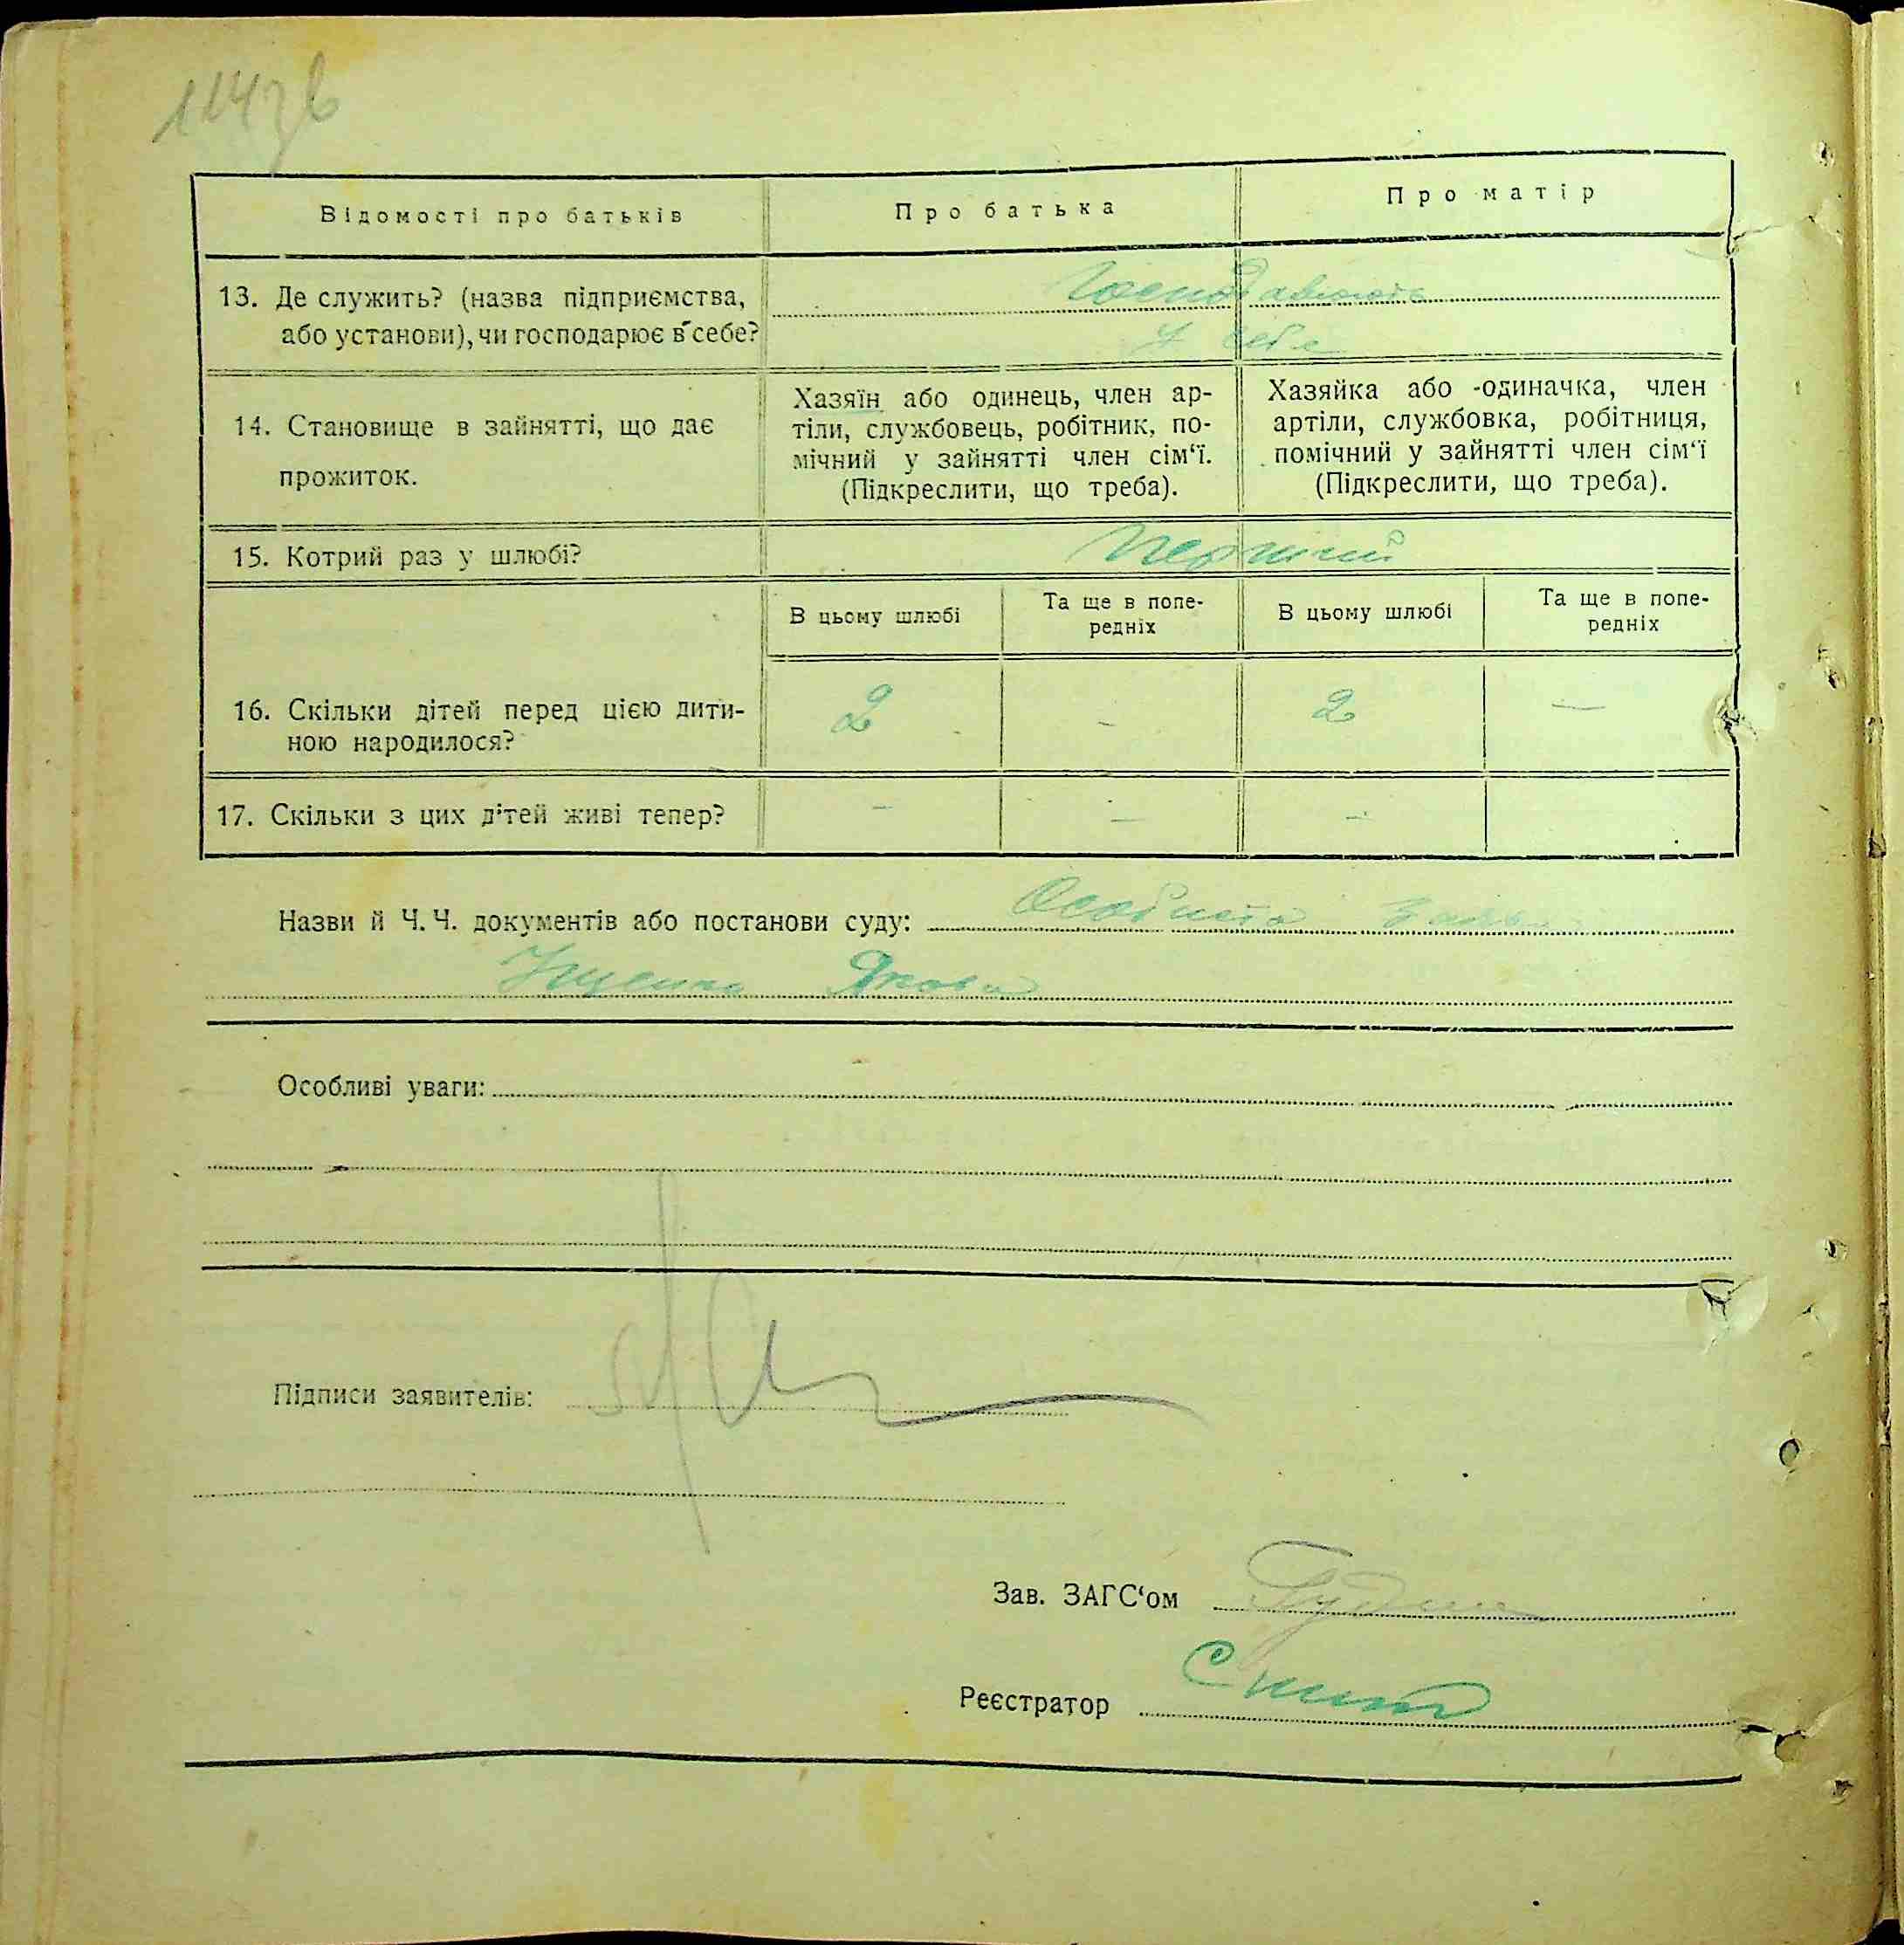 114зв
Відомості про батьків
Про батька
Про матір
13. Де служить? (назва підприємства,
або установи), чи господарює в себе?
Господарюють
у себе
14. Становище в зайнятті, що дає
прожиток.
Хазяїн або одинець, член ар-
тіли, службовець, робітник, по-
мічний у зайнятті член сім‘ї.
(Підкреслити, що треба).
Хазяйка або -одиначка, член
артіли, службовка, робітниця,
помічний у зайнятті член сім‘ї
(Підкреслити, що треба).
15. Котрий раз у шлюбі?
Перший
В цьому шлюбі
Та ще в попе-
редніх
В цьому шлюбі
Та ще в попе-
редніх
16. Скільки дітей перед цією дити-
ною народилося?
2 – 2 –
17. Скільки з цих дітей живі тепер?
– – –
Назви й Ч. Ч. документів або постанови суду: Особиста заява
Якова
Особливі уваги:
Підписи заявителів:
Зав. ЗАГС‘ом
Реєстратор